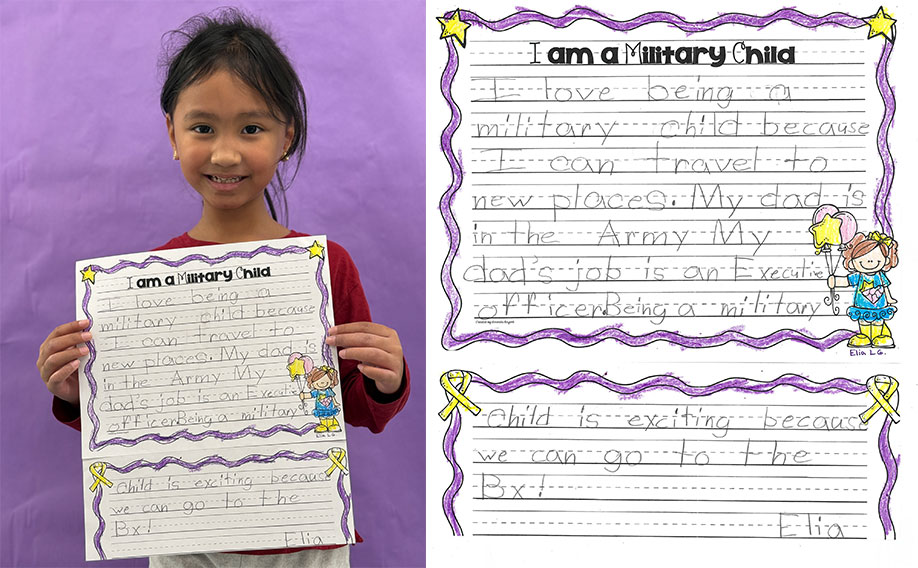 I am a Military Child
I love being a
military child because
I can travel to
new places. My dad is
in the Army My
dad's job is an Executive
officer.Being a military
Elia L.G.
Child is exciting because
we can go to the
Bx!
Elia
I am a Military Child
I love being a
military child because
I can travel to
new places. My dad is
in the Army My
dad's job is an Executive
officer.Being a military
Elia L.G.
Child is exciting because
we can go to the
Bx!
Elia